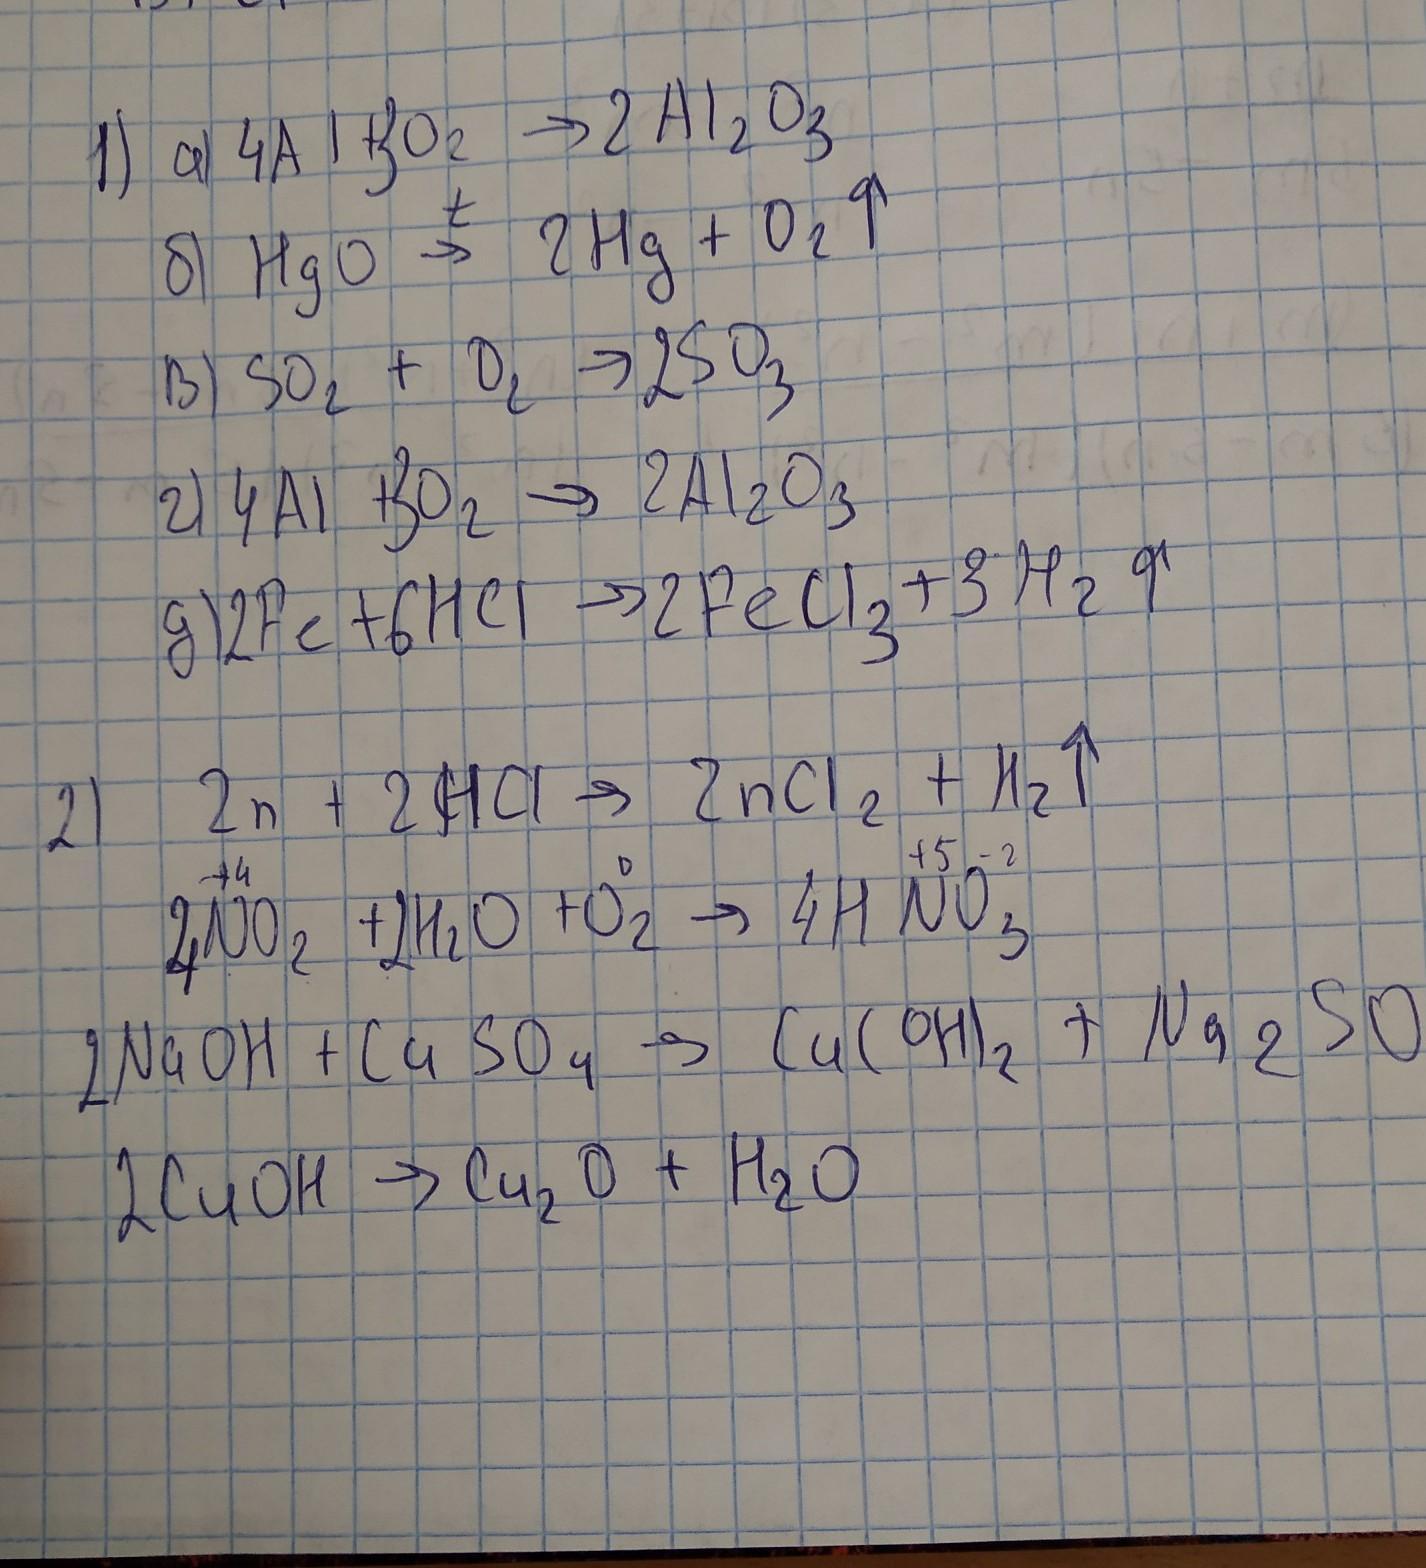 1) а) 4Al + 3O₂ → 2Al₂O₃
б) HgO →ᵗ 2Hg + O₂↑
в) SO₂ + O₂ → 2SO₃
г) 4Al + 3O₂ → 2Al₂O₃
д) 2Fe + 6HCl → 2FeCl₃ + 3H₂↑
2) Zn + 2HCl → ZnCl₂ + H₂↑
+4 0 +5 -2
4NO₂ + 2H₂O + O₂ → 4HNO₃
2NaOH + CuSO₄ → Cu(OH)₂ + Na₂SO
2CuOH → Cu₂O + H₂O